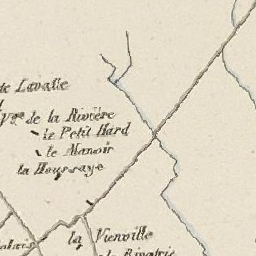 de Lavalle
Vge de la Rivière
le Petit Hard
le Manoir
la Houssaye
la Vienville